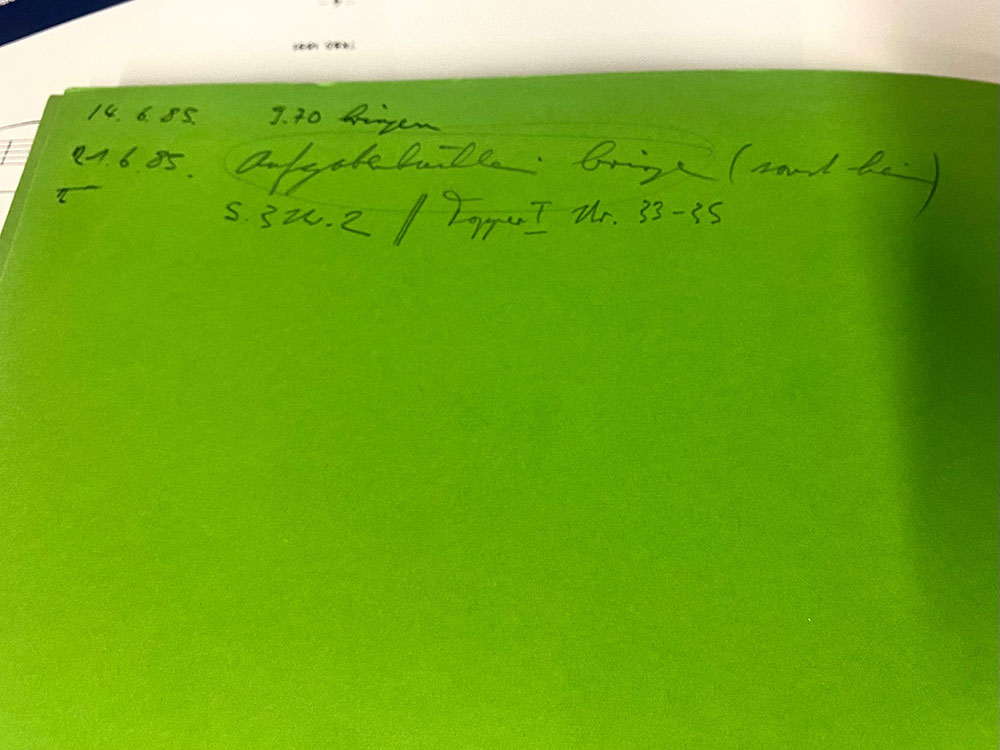 14. 6. 85. 9.70 bringen
21. 6. 85. Aufgabebüchlein bringe (sonst
S. 3 Nr. 2 // Topper I Nr. 33-35